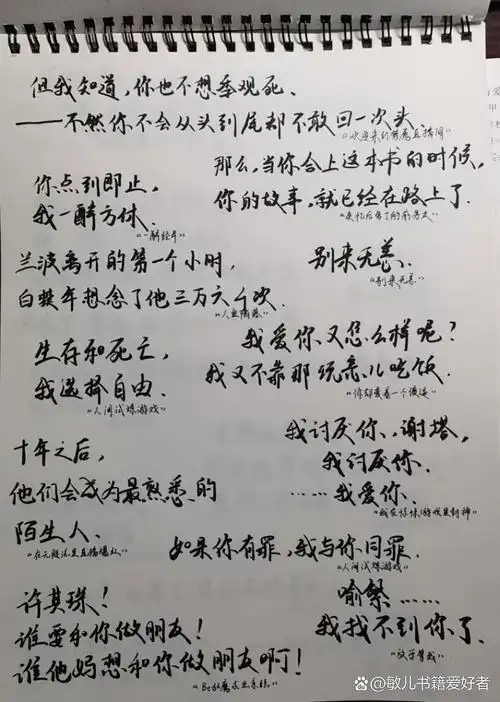 但我知道，你也不想季观死、
——不然你不会从头到尾都不敢回一次头、
"欢迎来到噩属直播间"
那么，当你合上这本书的时候，
你的故事，就已经在路上了.
"失忆后信了前男友"
你点到即止，
我一醉方休.
"一醉经年"
兰波离开的第一个小时，
白楚年想念了他三万六千次.
"人鱼陷落"
别来无恙.
"别来无恙"
生存和死亡，
我选择自由.
"人间试炼游戏"
我爱你又怎么样呢？
我又不靠那玩意儿吃饭
"你却爱着一个傻逼"
十年之后，
他们会成为最熟悉的
陌生人.
"在无限流里直播爆红"
我讨厌你，谢塔，
我讨厌你.
……我爱你.
"我在惊悚游戏里封神"
如果你有罪，我与你同罪.
"人间试炼游戏"
许其琛！
谁要和你做朋友！
谁他妈想和你做朋友啊！
"Be狂魔求生系统"
喻繁……
我找不到你了.
"放学等我"
@敏儿书籍爱好者